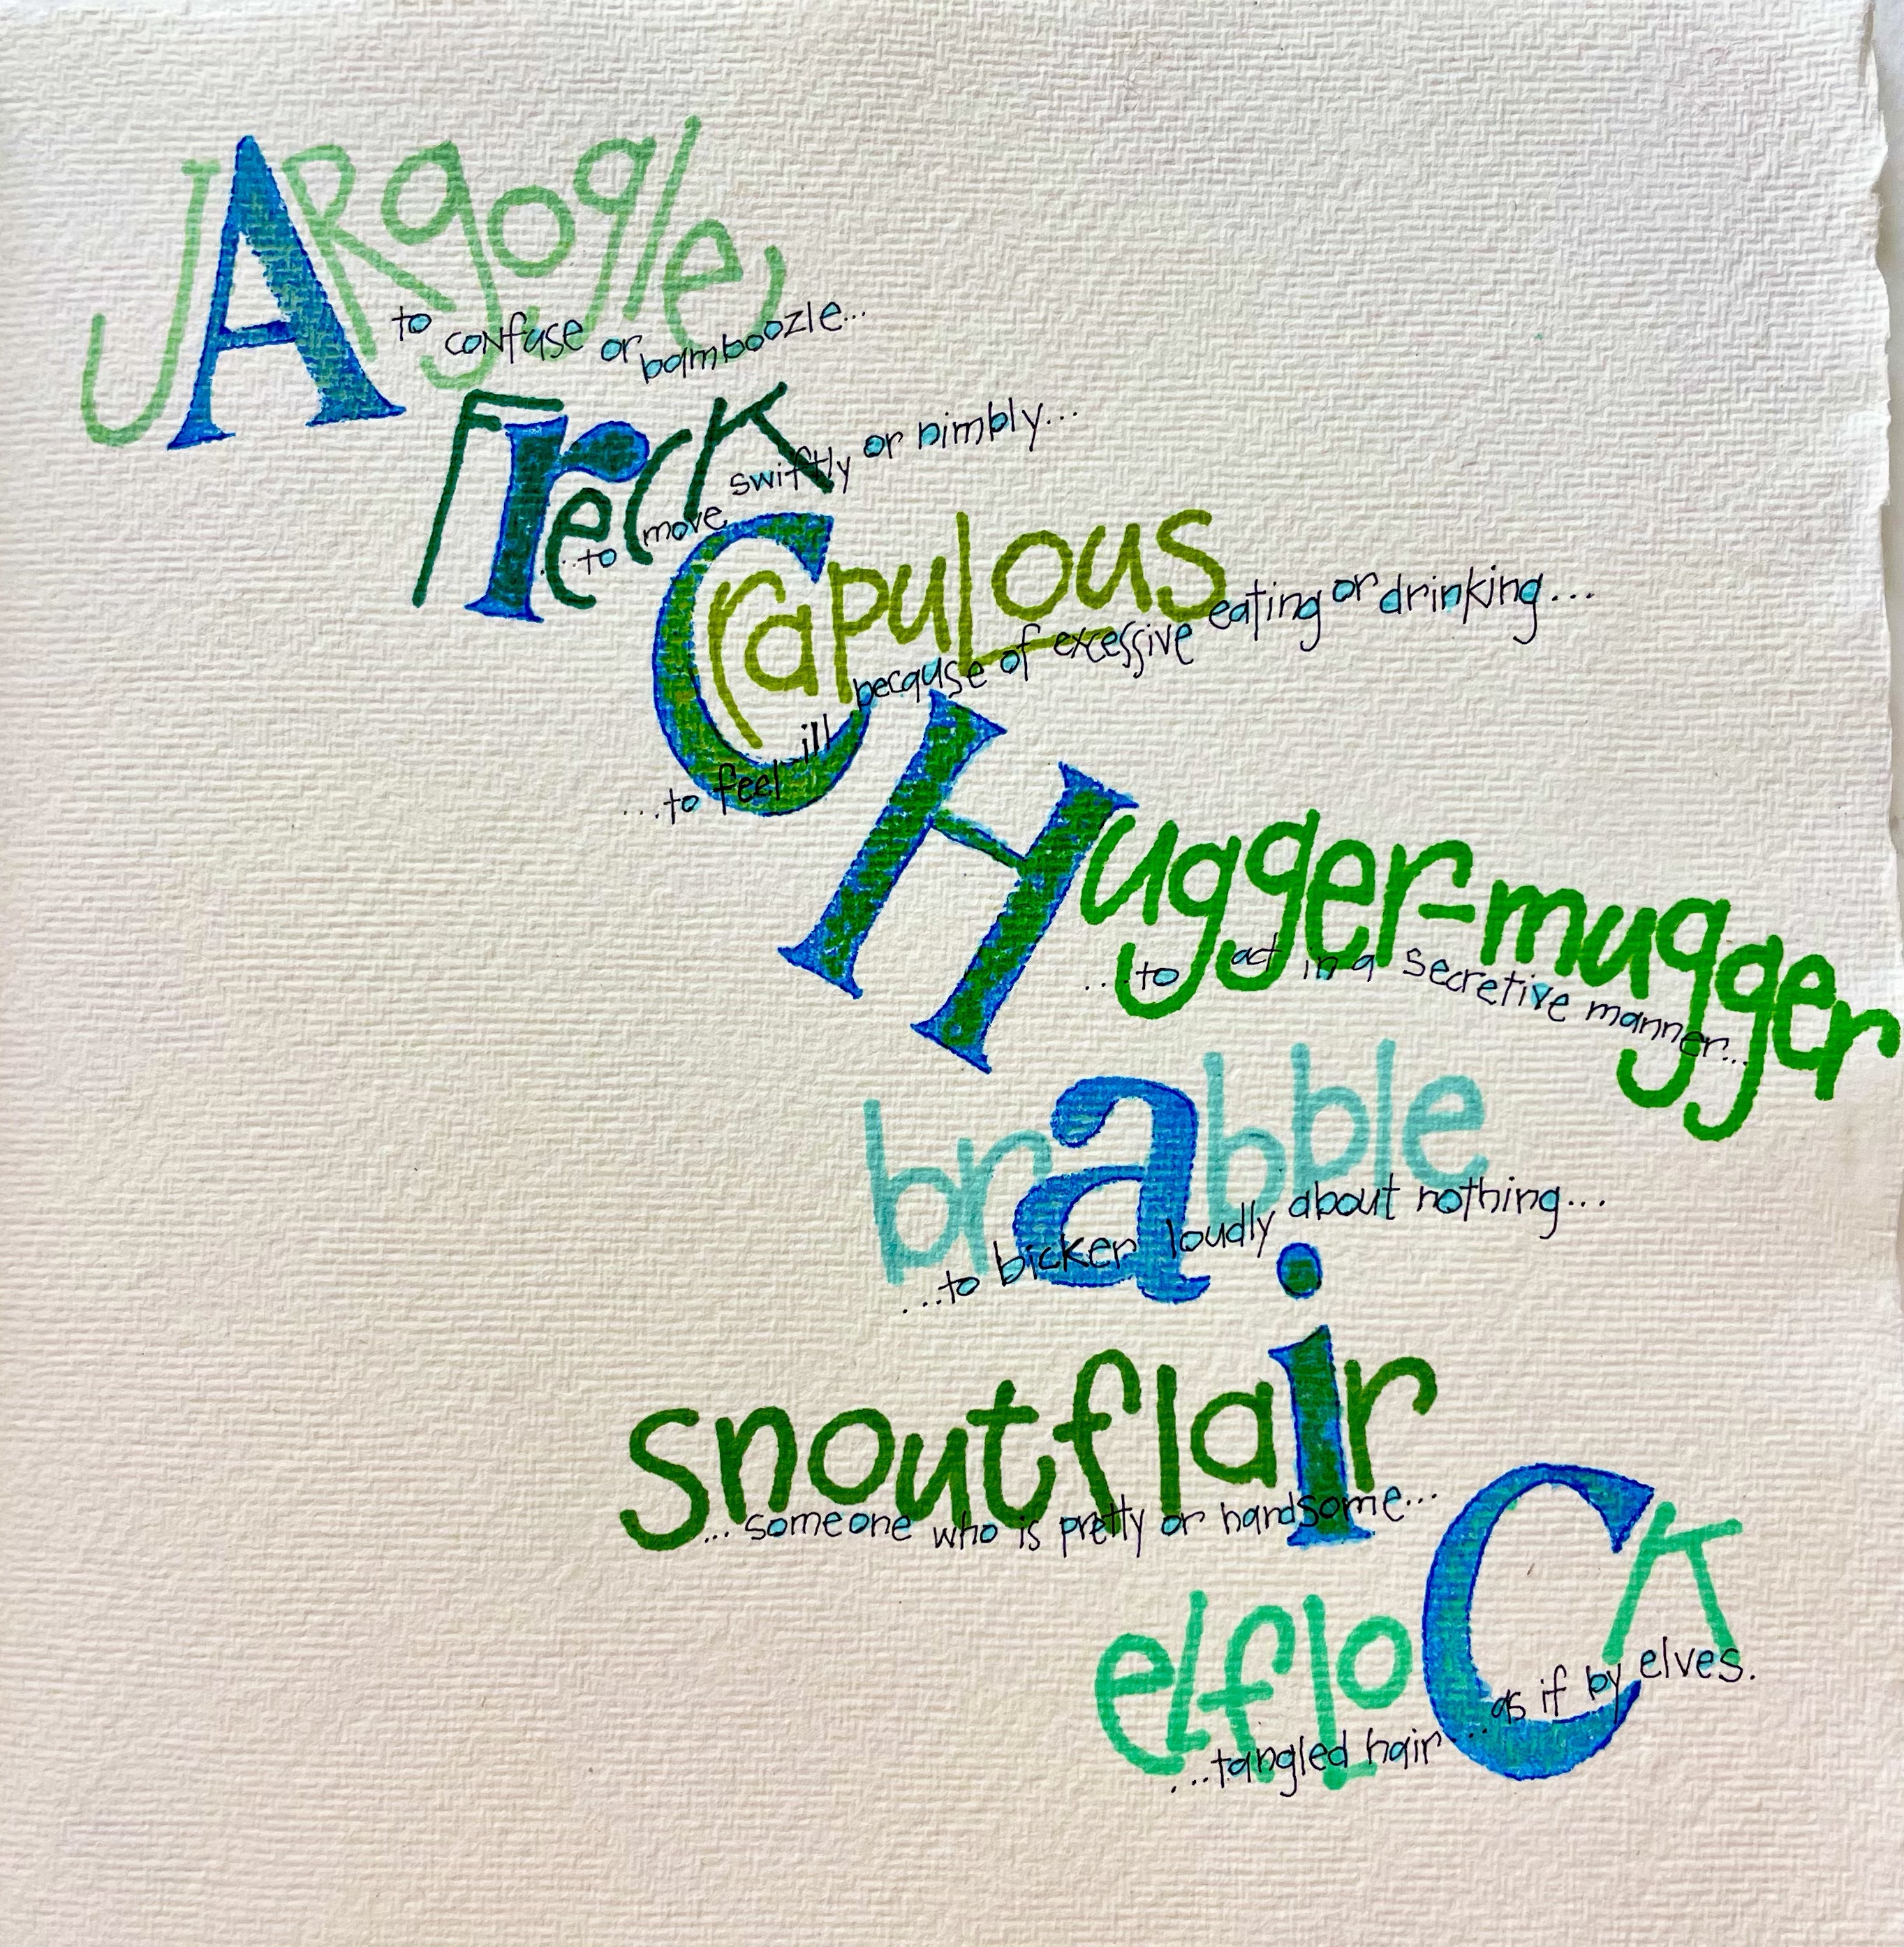 JARgogle,
to confuse or bamboozle...
FrecK
...to move swiftly or nimbly...
CrapuLous
...to feel ill because of excessive eating or drinking...
Hugger-mugger
...to act in a secretive manner...
brabble
...to bicker loudly about nothing...
snoutflair
...someone who is pretty or handsome...
eLfloCK
...tangled hair ...as if by elves.